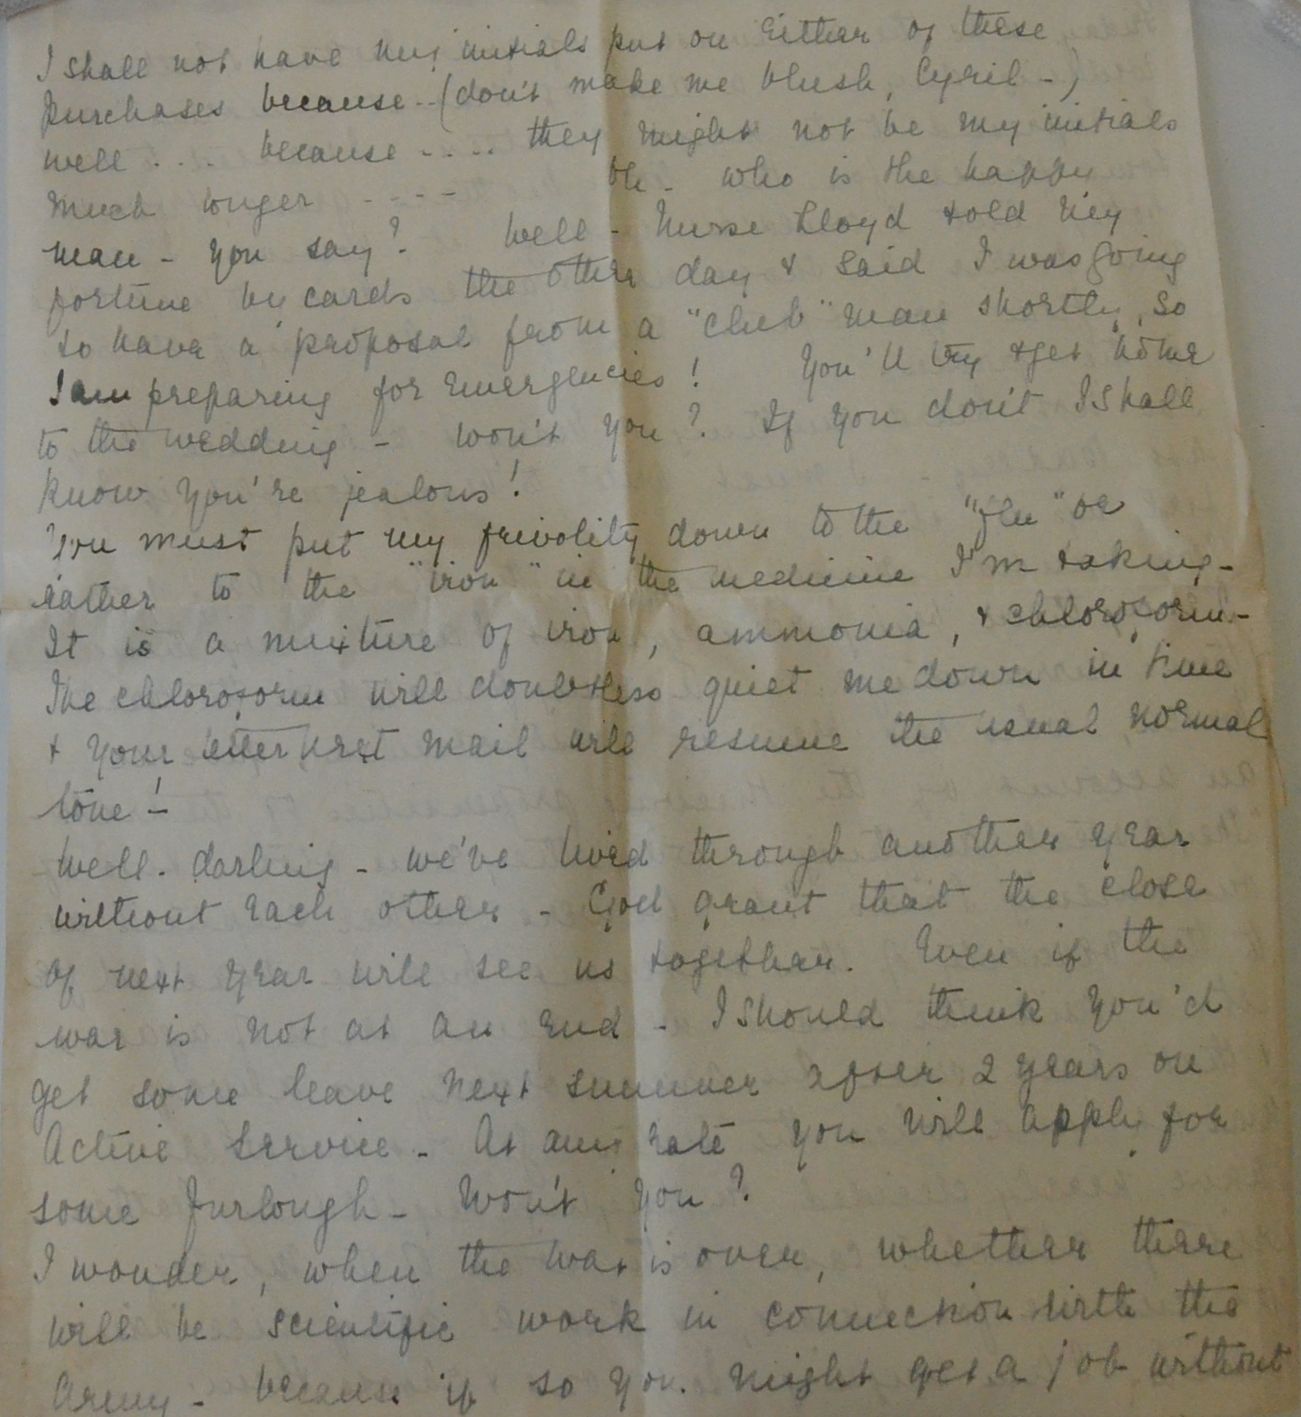 I shall not have my initials put on either of these
purchases because - (don't make me blush, Cyril - )
well .... because .... they might not be my initials
much longer - - - - Oh - who is the happy
man - you say? Well - Nurse Lloyd told my
fortune by cards the other day & said I was going
to have a proposal from a "club" man shortly, so
I am preparing for emergencies! You'll try & get home
to the wedding - won't you? If you don't I shall
know you're jealous!
You must put my frivolity down to the "flu" or
rather to the "iron" in the medicine I'm taking -
It is a mixture of iron, ammonia, & chloroform -
The chloroform will doubtless quiet me down in time
& your letter next mail will resume the usual normal
tone! -
Well - darling - we've lived through another year
without each other - God grant that the close
of next year will see us together. Even if the
war is not at an end - I should think you'd
get some leave next summer after 2 years on
Active Service - At any rate you will apply for
some furlough - Won't you?
I wonder, when the war is over, whether there
will be scientific work in connection with the
Army - because if so you might get a job without